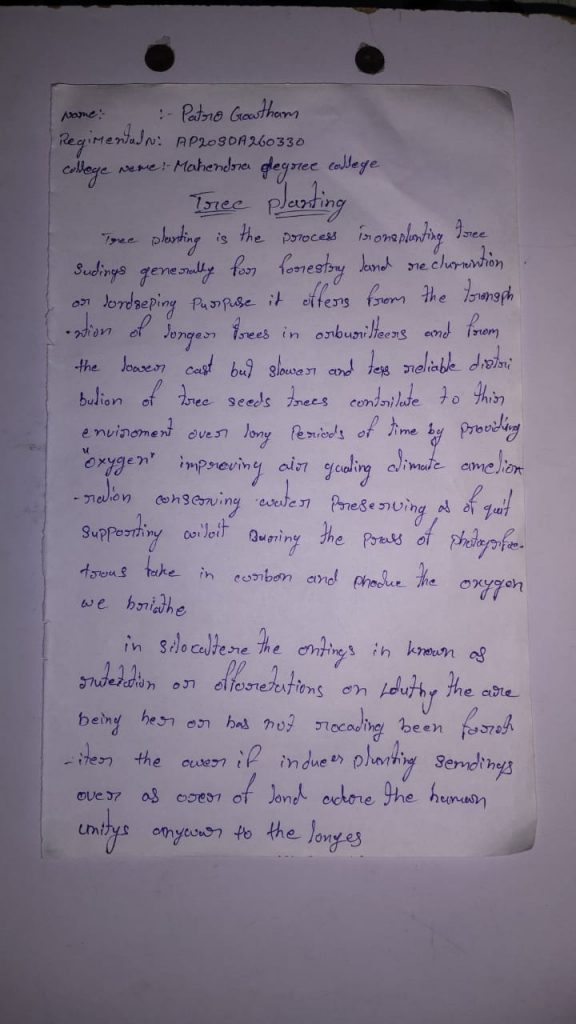 Name: :- Patro Goutham
Regimental N: AP20SDA260330
college neme :- Mahendra degree college
Tree planting
Tree planting is the process tronsplanting tree
Sudings generally for forrestry land reclumintion
or lordseping purpuse it offers from the tronsph
-ntion of longer trees in and from
the lower cast but slower and less reliable distri
bution of tree seeds trees contrilate to thir
enviroment over long Periods of time by providing
"oxygen" improving air climate amelior
-nation conserving water Preserving as of quit
supporting During the of
take in and the oxygen
we briathe
in silocultere the ontings in known as
or on the are
being her or has not been
-iter the ower if plunting semdings
over as orer of land adore the human
unitys to the longes